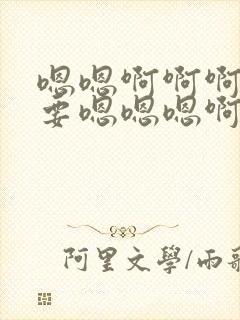 嗯嗯啊啊啊
要嗯嗯嗯啊
阿里文學/雨歌